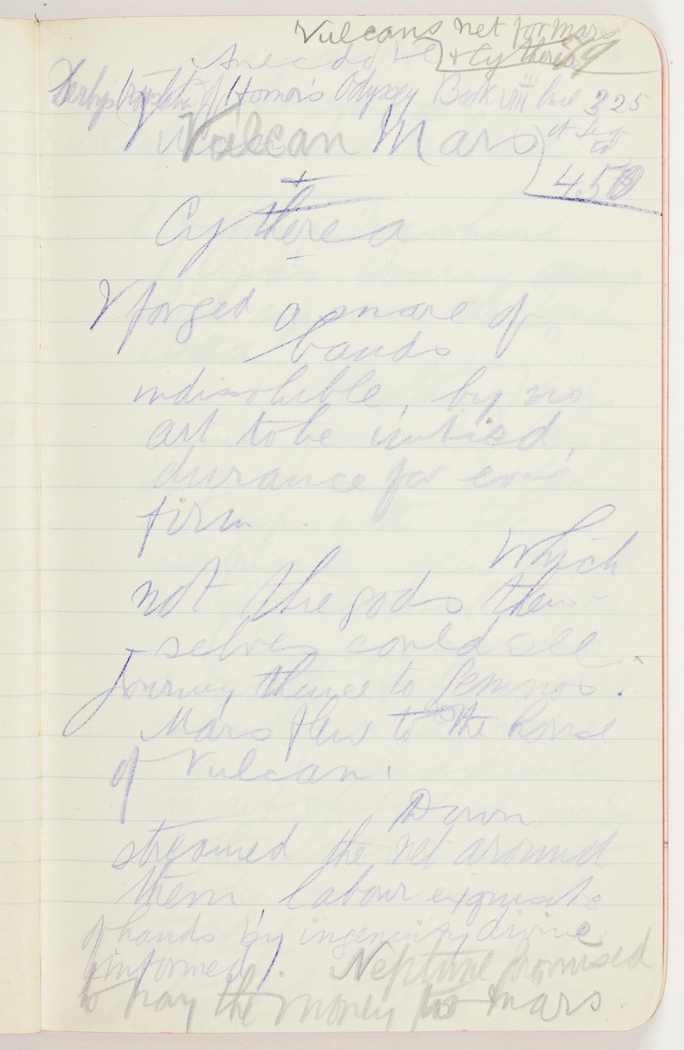 Vulcans net for Mars
+ Cytherea
Anecdote
Derby's translation of Homer's Odyssey Book VIII line 325
Vulcan Mars
to
450
+
Cytherea
& forged a snare of
bands
indissoluble, by no
art to be untied,
durance for ever
firm.
Which
not the gods them-
selves could see
journey thence to Lemnos.
Mars flew to the house
of Vulcan.
Down
streamed the net around
them labour exquisite
of hands by ingenuity divine
informed). Neptune promised
to pay the money for Mars.